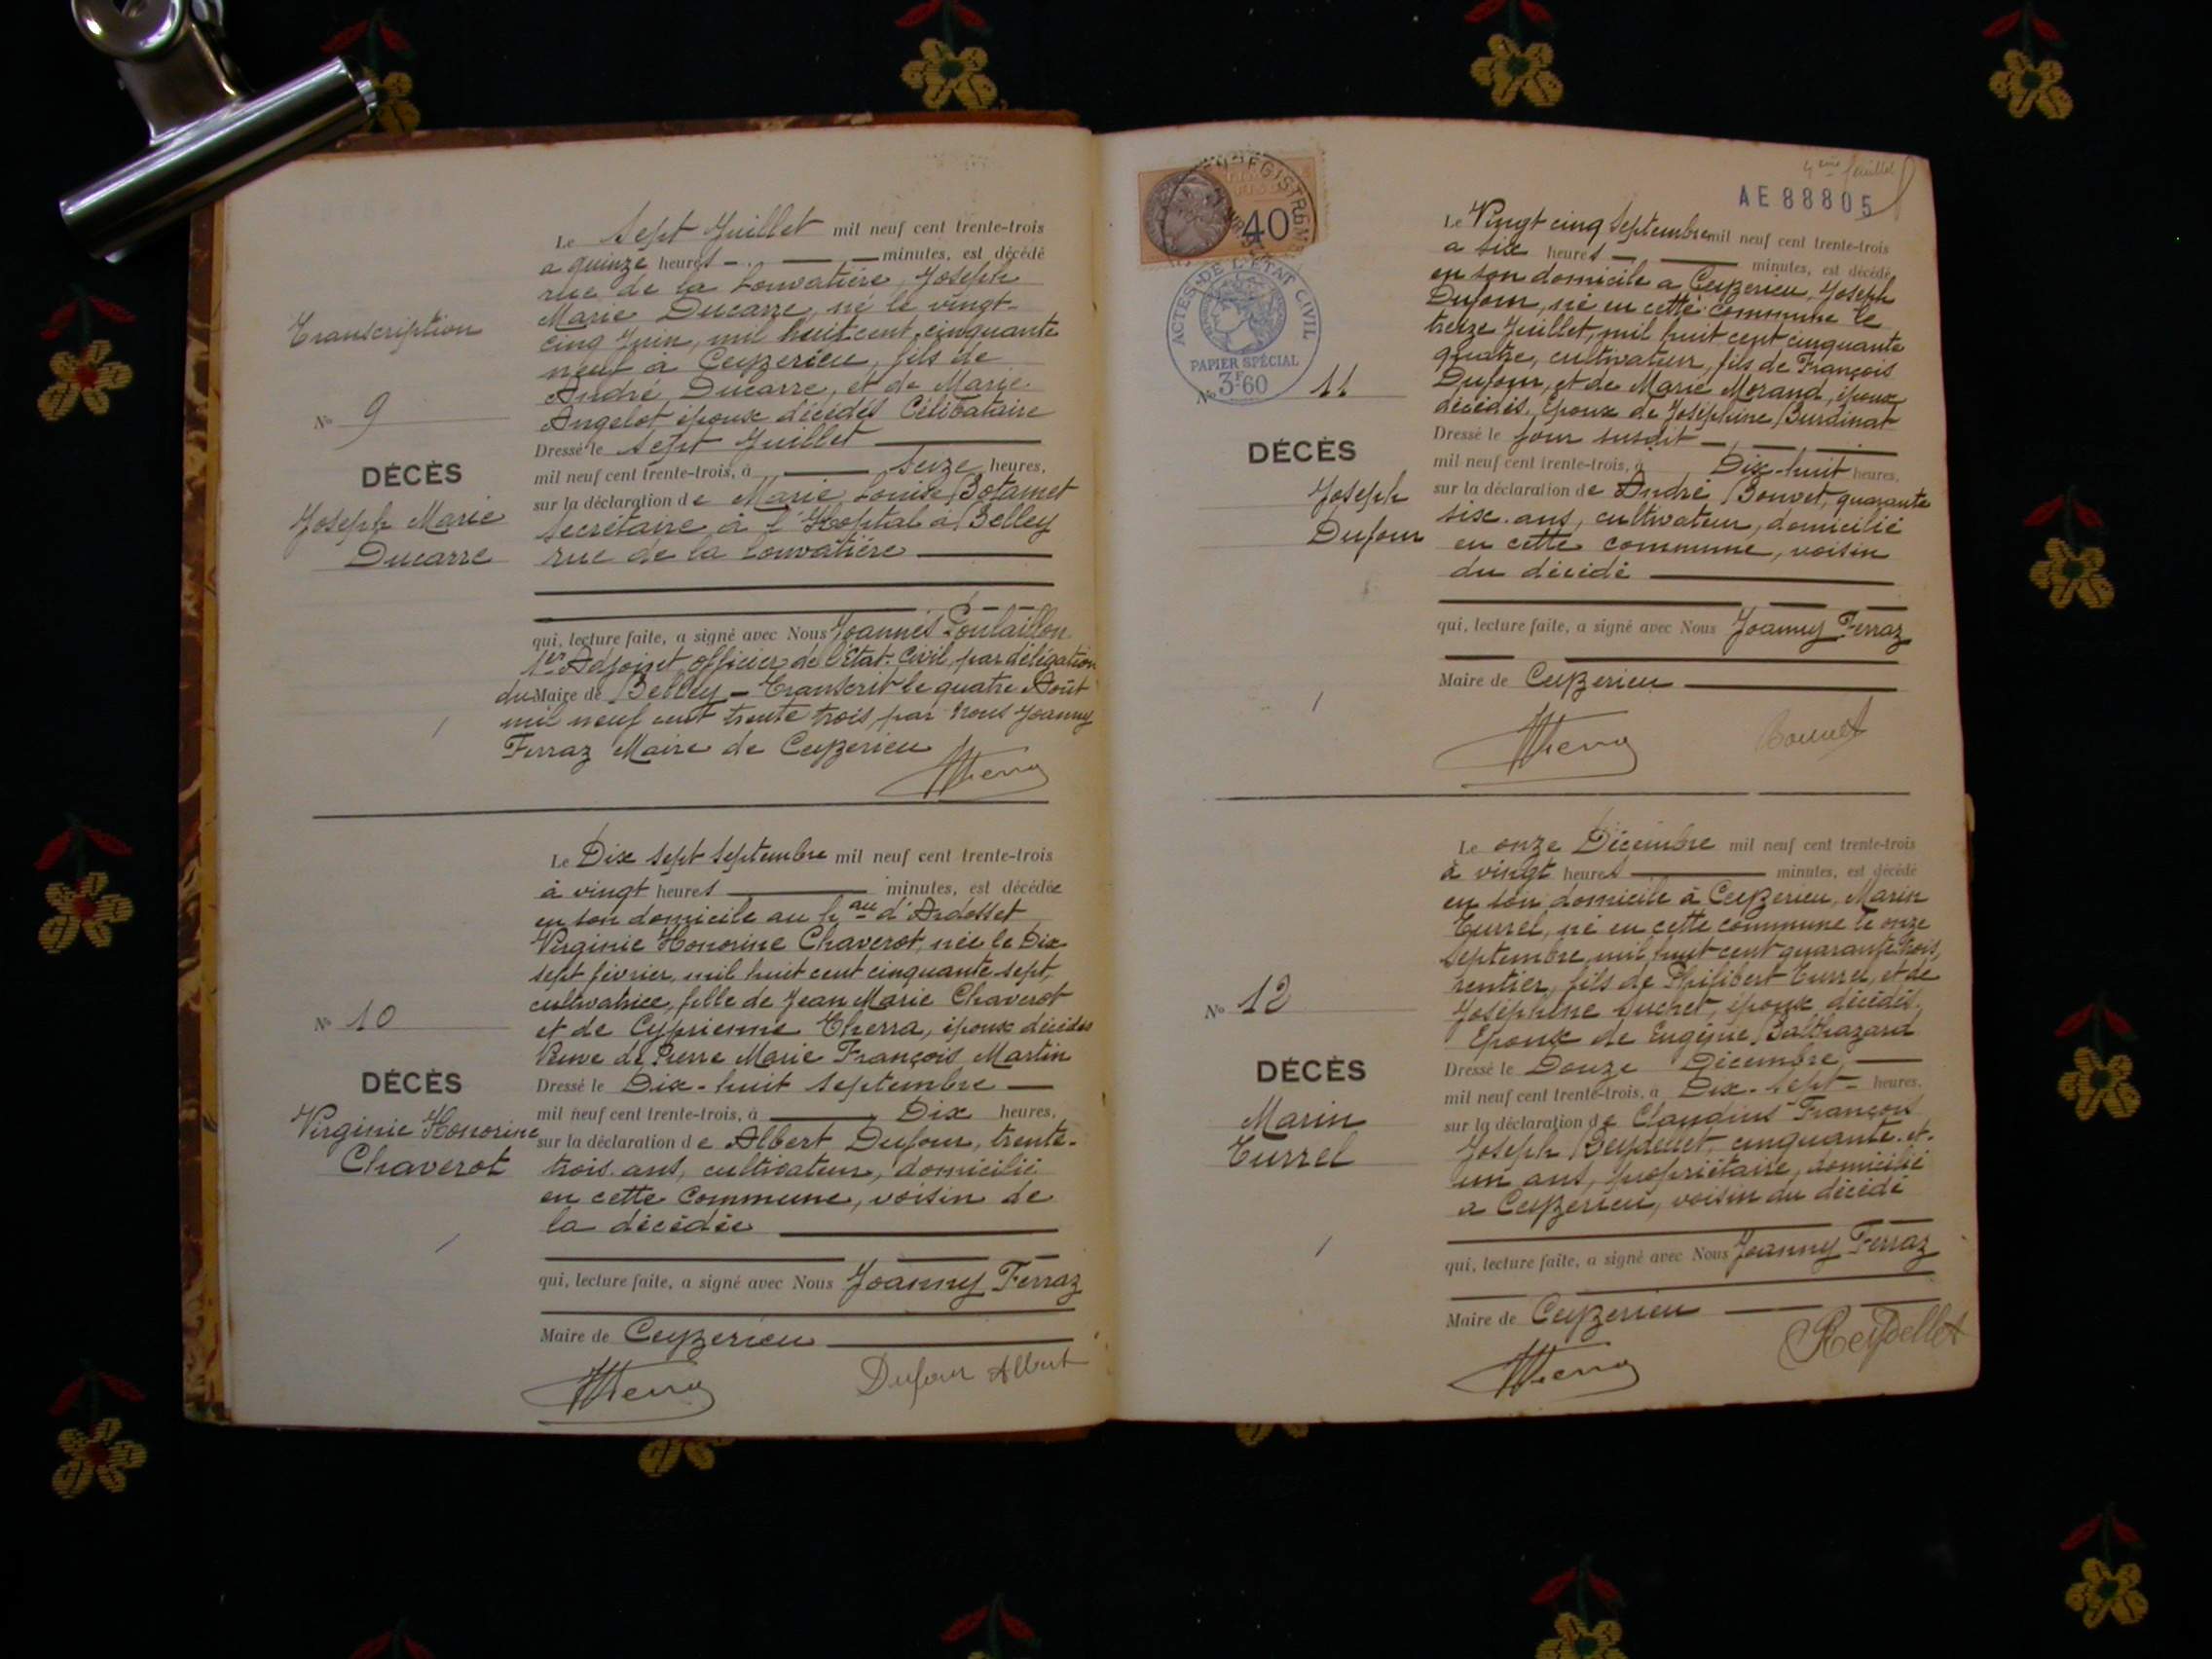 Transcription
Nº 9
DÉCÈS
Joseph Marie
Ducarre
Le Sept Juillet mil neuf cent trente-trois
a quinze heures minutes, est décédé
rue de la Louvatière, Joseph
Marie Ducarre, né le vingt-
cinq Juin, mil huit cent cinquante
neuf à Ceyzerieu, fils de
André Ducarre, et de Marie
Angelot époux décédés Célibataire
Dressé le Sept Juillet
mil neuf cent trente-trois, à Seize heures,
sur la déclaration de Marie Louise Botamet
Secrétaire à l'Hopital à Belley
rue de la Louvatière
qui, lecture faite, a signé avec Nous Joannès Poulaillon
1er Adjoint officier de l'Etat. Civil, par délégation
du Maire de Belley - Transcrit le quatre Août
mil neuf cent trente trois, par Nous Joanny
Ferraz Maire de Ceyzerieu
Nº 10
DÉCÈS
Virginie Honorine
Chaverot
Le Dix sept septembre mil neuf cent trente-trois
à vingt heures minutes, est décédée
en son domicile au hau d'Ardosset
Virginie Honorine Chaverot, née le Dix
sept février, mil huit cent cinquante sept,
cultivatrice, fille de Jean Marie Chaverot
et de Cyprienne Cherra, époux décédés
Veuve de Pierre Marie François Martin
Dressé le Dix-huit septembre
mil neuf cent trente-trois, à Dix heures,
sur la déclaration de Albert Dufour, trente-
trois ans, cultivateur, domicilié
en cette Commune, voisin de
la décédée
qui, lecture faite, a signé avec Nous Joanny Ferraz
Maire de Ceyzerieu
Dufour Albert
4eme feuillet
AE 88805
40
ACTES DE L'ÉTAT CIVIL
PAPIER SPÉCIAL
3F60
Nº 11
DÉCÈS
Joseph
Dufour
Le Vingt cinq Septembre mil neuf cent trente-trois
a six heures minutes, est décédé
en son domicile a Ceyzerieu, Joseph
Dufour, né en cette commune le
treize Juillet, mil huit cent cinquante
quatre, cultivateur, fils de François
Dufour, et de Marie Morand, époux
décédés. Epoux de Joséphine Burdinat
Dressé le jour susdit
mil neuf cent trente-trois, à Dix-huit heures,
sur la déclaration de André Bonvet, quarante
six. ans, cultivateur, domicilié
en cette commune, voisin
du décédé
qui, lecture faite, a signé avec Nous Joanny Ferraz
Maire de Ceyzerieu
Nº 12
DÉCÈS
Marin
Turrel
Le onze Décembre mil neuf cent trente-trois
à vingt heures minutes, est décédé
en son domicile à Ceyzerieu, Marin
Turrel, né en cette commune le onze
Septembre, mil huit cent quarante trois,
rentier, fils de Philibert Turrel, et de
Joséphine Suchet, époux décédés.
Epoux de Eugénie Balthazard
Dressé le Douze Décembre
mil neuf cent trente-trois, à Dix-sept heures,
sur la déclaration de Claudius François
Joseph Reydellet, cinquante-et-
un ans, propriétaire, domicilié
a Ceyzerieu, voisin du décédé
qui, lecture faite, a signé avec Nous Joanny Ferraz
Maire de Ceyzerieu
Reydellet